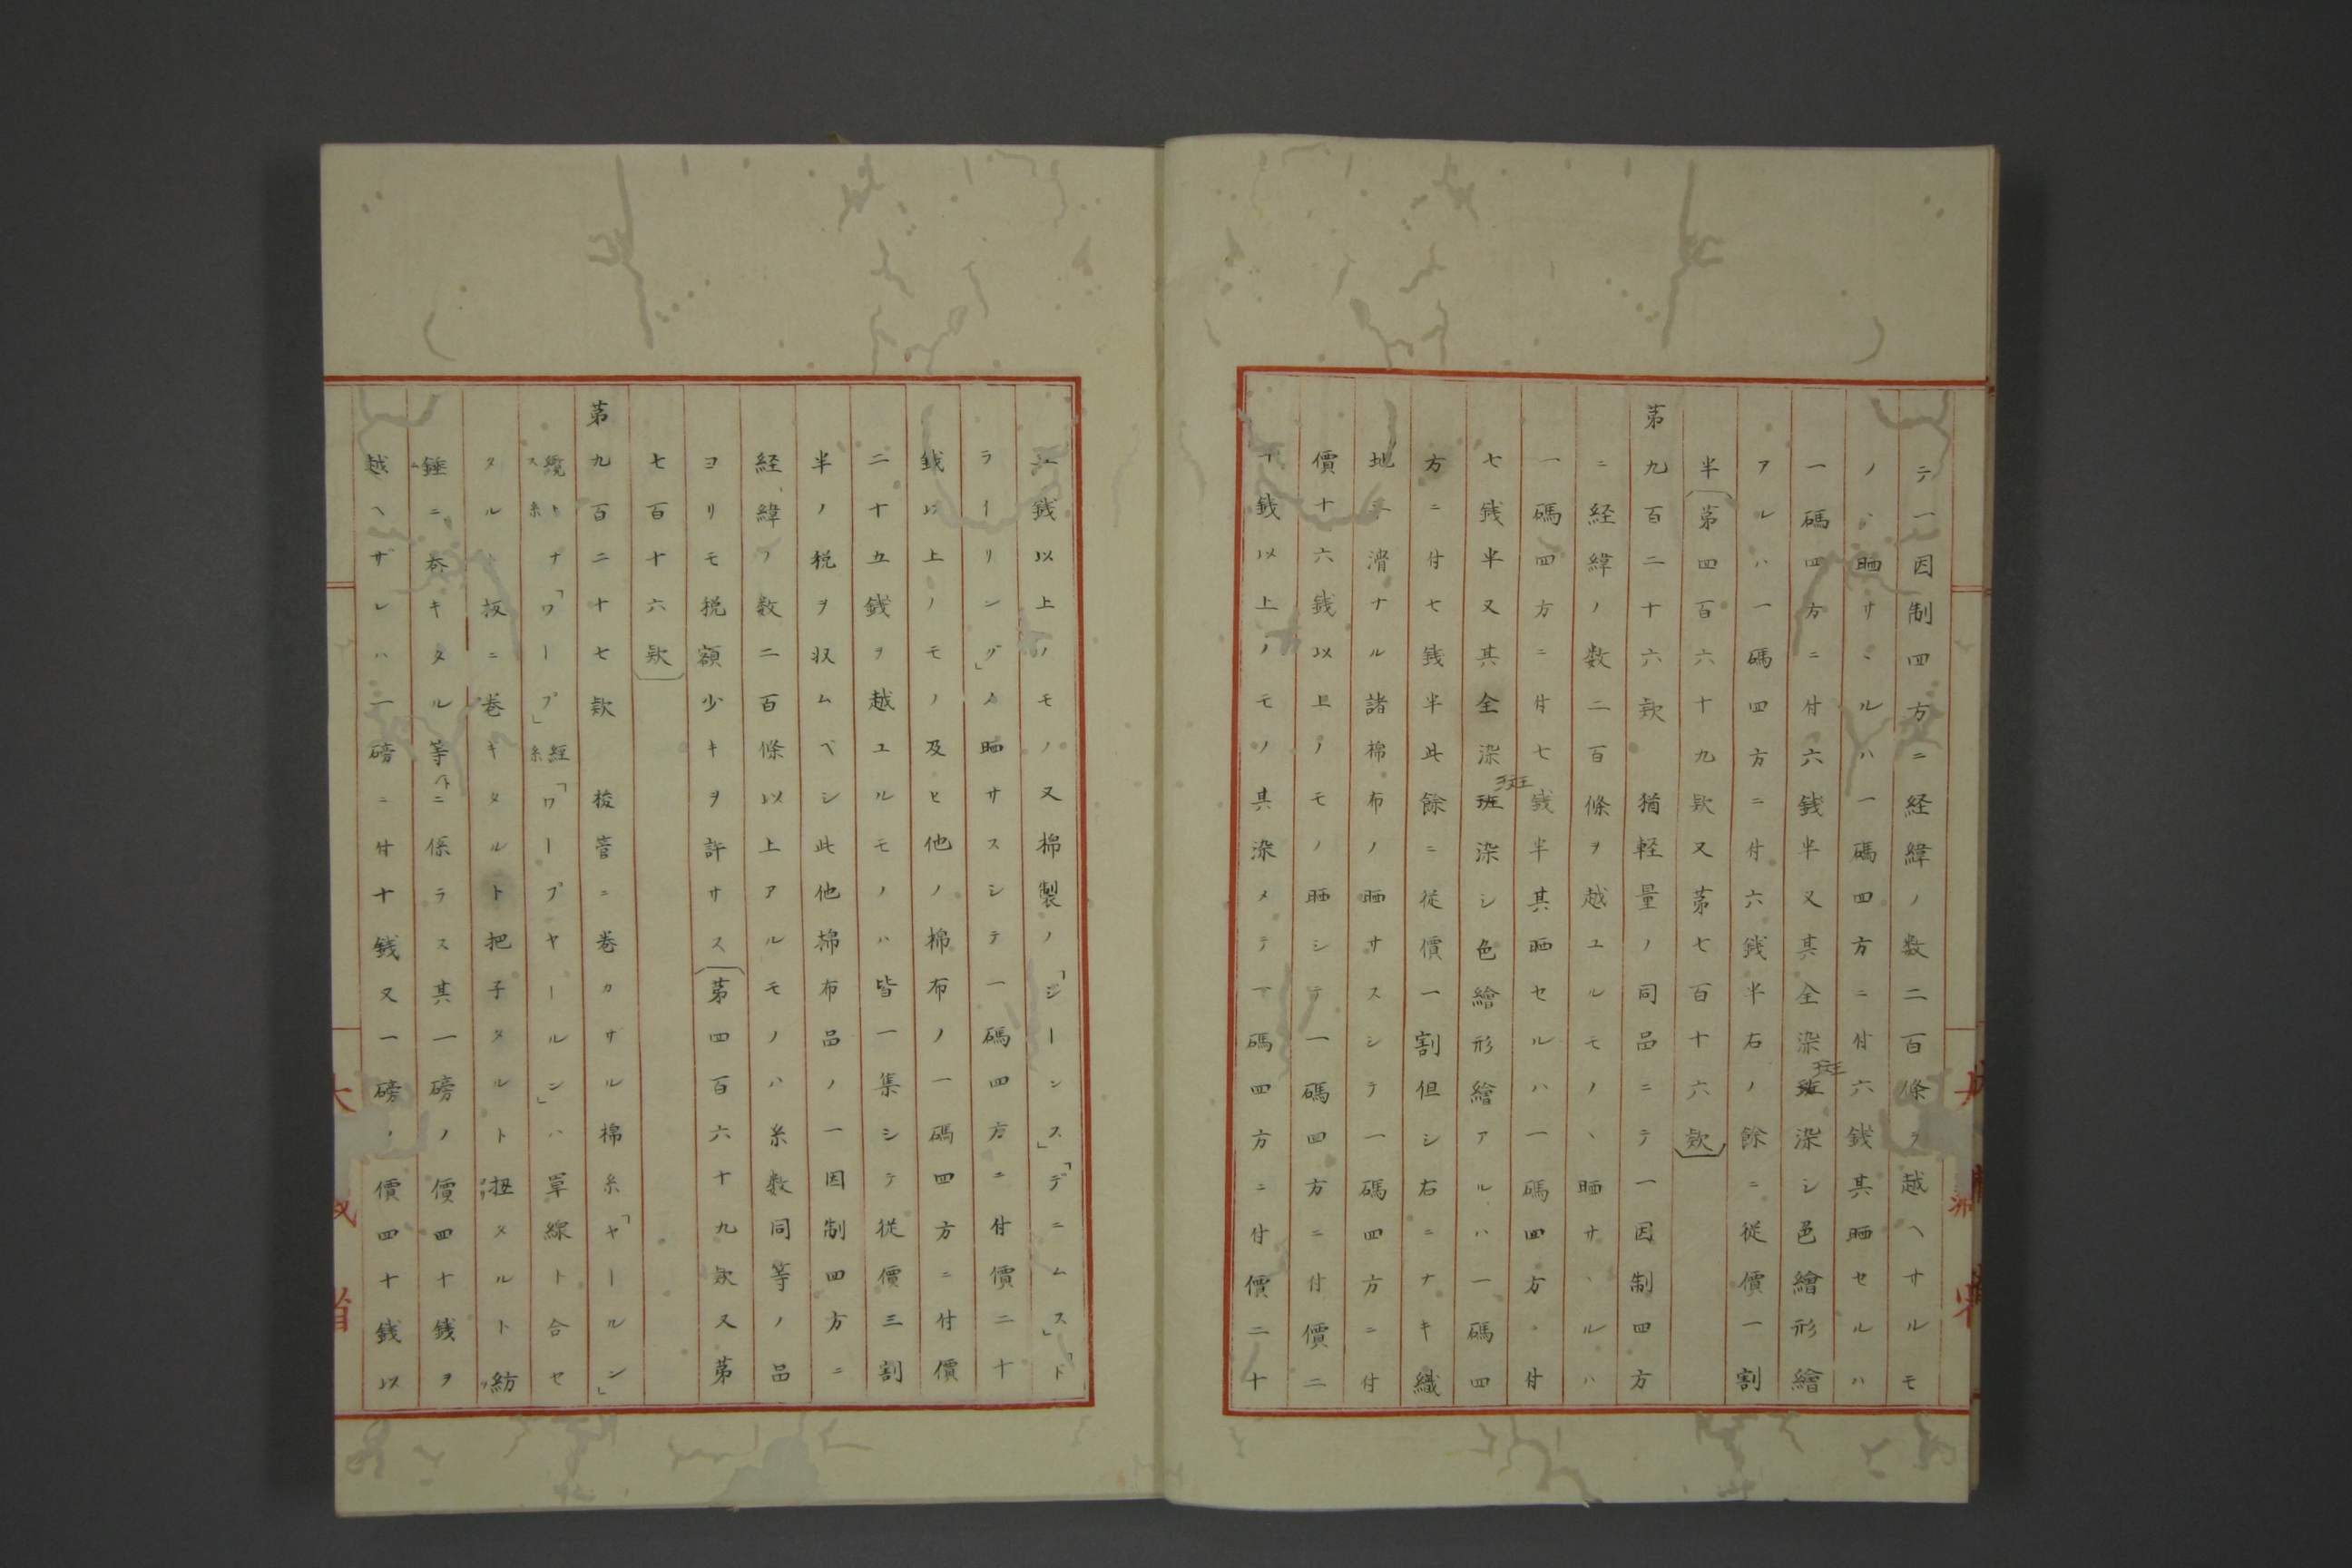 テ一因制四方ニ経緯ノ数二百條ヲ越ヘサルモ
ノヽ晒サヽルハ一碼四方ニ付六銭其晒セルハ
一碼四方ニ付六銭半又其全染班斑染シ色繪形繪
アルハ一碼四方ニ付六銭半右ノ餘ニ従價一割
半〔第四百六十九欵又第七百十六欵〕
第九百二十六欵 猶軽量ノ同品ニテ一因制四方
ニ経緯ノ数二百條ヲ越ユルモノヽ晒サヽルハ
一碼四方ニ付七銭半其晒セルハ一碼四方ニ付
七銭半又其全染班斑染シ色繪形繪アルハ一碼四
方ニ付七銭半此餘ニ従價一割但シ右ニナキ織
地ノ滑ナル諸棉布ノ晒サスシテ一碼四方ニ付
價十六銭以上ノモノ晒シテ一碼四方ニ付價二
十銭以上ノモノ其染メテ一碼四方ニ付價二十
五銭以上ノモノ又棉製ノ「ジーンス」「デニムス」「ド
ラーリング」ノ晒サスシテ一碼四方ニ付價二十
銭以上ノモノ及ヒ他ノ棉布ノ一碼四方ニ付價
二十五銭ヲ越ユルモノハ皆一集シテ従價三割
半ノ税ヲ収ムベシ此他棉布品ノ一因制四方ニ
経緯ノ数二百條以上アルモノハ糸数同等ノ品
ヨリモ税額少キヲ許サス〔第四百六十九欵又第
七百十六欵〕
第九百二十七欵 梭管ニ巻カザル棉糸「ヤールン」
纜糸トナ「ワープ」経糸「ワープヤールン」ハ單線ト合セ
タルト板ニ巻キタルト把子タルト扭メルト紡
錘ニ巻キタル等ニ係ラス其一磅ノ價四十銭ヲ
越ヘザレハ一磅ニ付十銭又一磅ノ價四十銭以
大 蔵 省